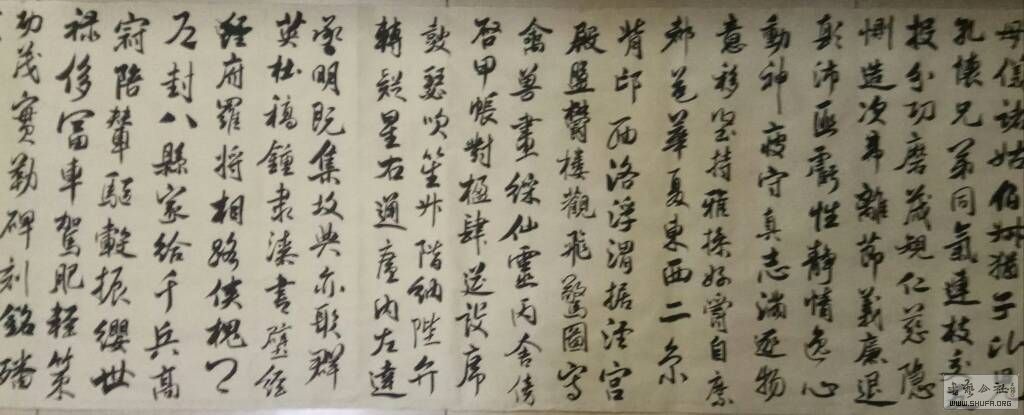 母儀諸姑伯叔猶子比兒
孔懷兄弟同氣連枝交
投分切磨箴規仁慈隱
惻造次弗離節義廉退
顛沛匪虧性靜情逸心
動神疲守真志滿逐物
意移堅持雅操好爵自縻
都邑華夏東西二京
背邙面洛浮渭據涇宮
殿盤鬱樓觀飛驚圖寫
禽獸畫綵仙靈丙舍傍
啓甲帳對楹肆筵設席
鼓瑟吹笙升階納陛弁
轉疑星右通廣內左達
承明既集墳典亦聚群
英杜稿鍾隸漆書壁經
經府羅將相路俠槐卿
戶封八縣家給千兵高
冠陪輦驅轂振纓世
祿侈富車駕肥輕策
功茂實勒碑刻銘磻
WWW.SHUFA.ORG